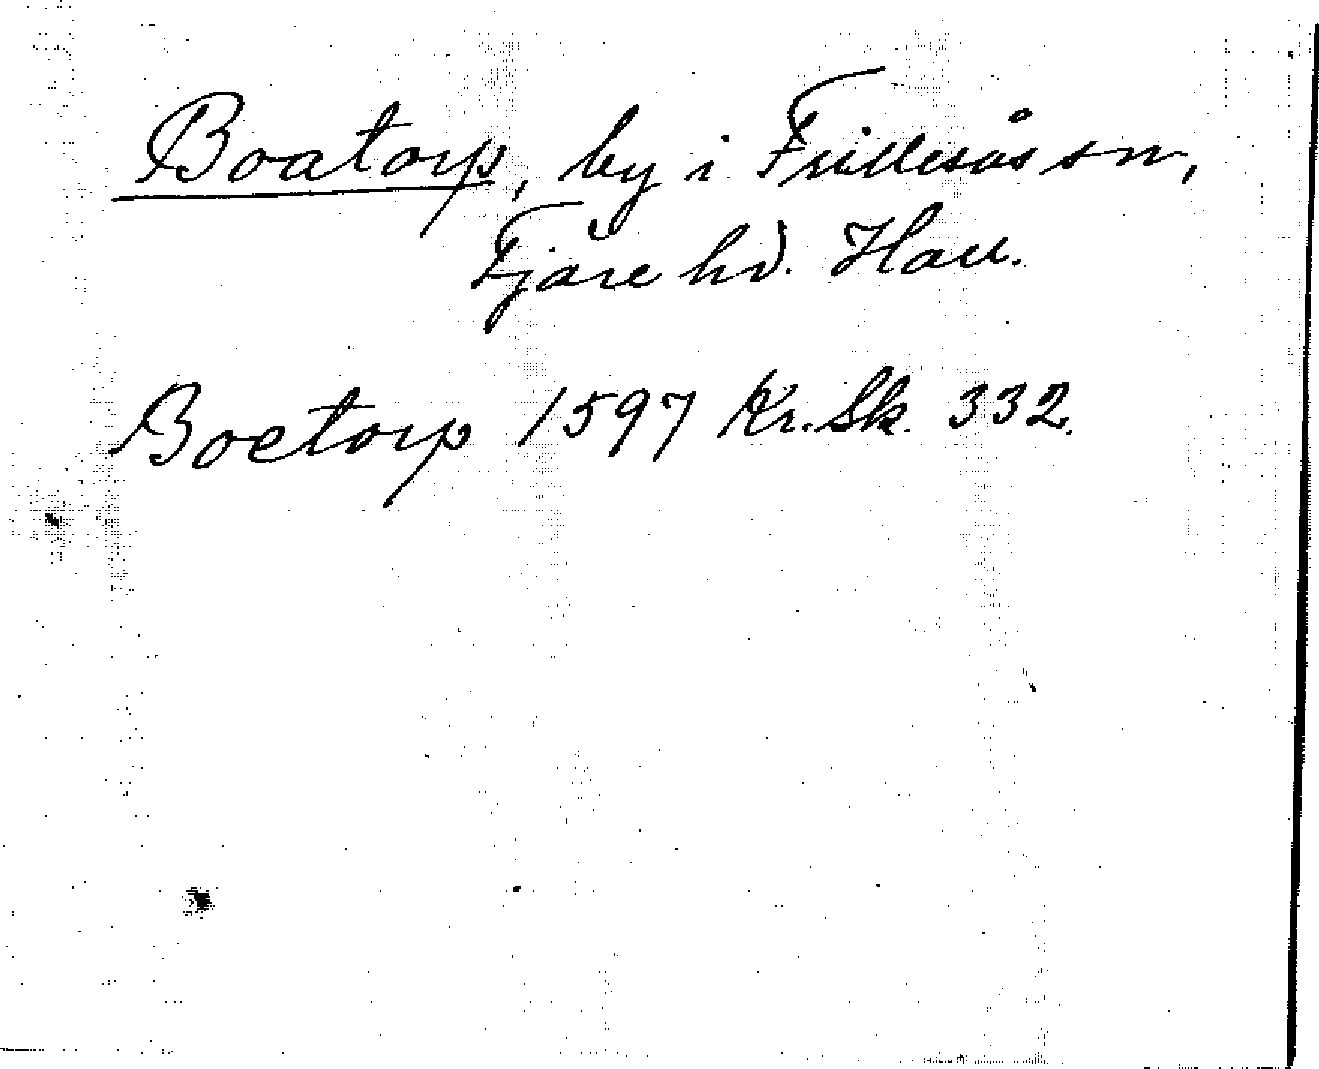 Boatorp, by i Frillesås sn,
Fjäre hd. Hall.
Boetorp 1597 Kr. Sk. 332.